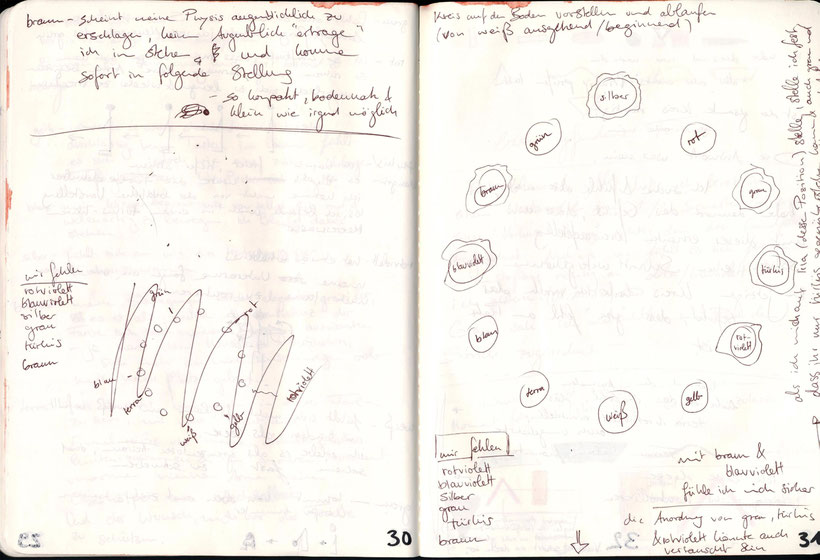 braun – scheint meine Physis augenblicklich zu
erschlagen, kein Augenblick "ertrage"
ich im Stehen & und komme
sofort in folgende Stellung
– so kompakt, bodennah &
klein wie irgend möglich
mir fehlen
rotviolett
blauviolett
silber
grau
türkis
braun
grün
rot
blau
terra
weiß
gelb
rotviolett
30
Kreis auf den Boden vorstellen und ablaufen
(von weiß ausgehend/beginnend)
silber
grün
rot
braun
grau
blauviolett
türkis
blau
rot-
violett
terra
gelb
weiß
mir fehlen
rotviolett
blauviolett
silber
grau
türkis
braun
mit braun &
blauviolett
fühle ich mich sicher
die Anordnung von grau, türkis
& rotviolett könnte auch
vertauscht sein
31
als ich mich auf (diese Position) stelle, stelle ich fest
dass ihr nur türkis gegenüber könnte auch grau und